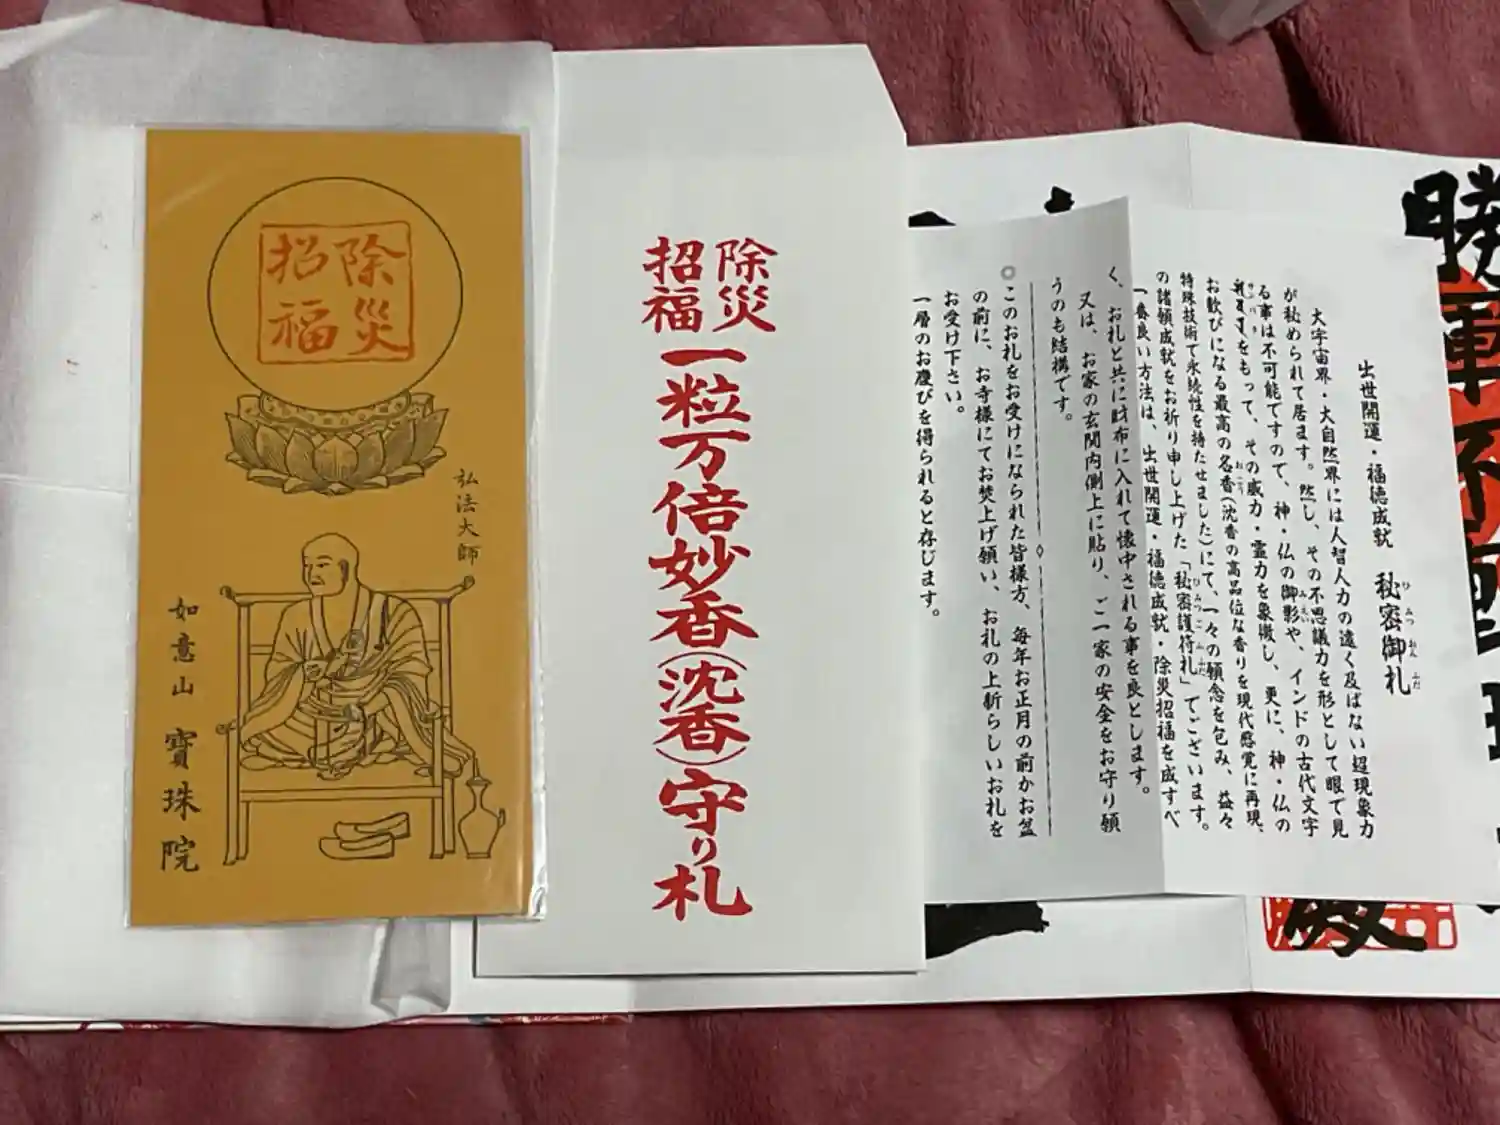 除災
招福
弘法大師
如意山 寳珠院
除災
招福
一粒万倍妙香(沈香)守り札
出世開運・福徳成就 秘密御札
ひみつおんふだ
大宇宙界・大自然界には人智人力の遠く及ばない超現象力
が秘められて居ます。然し、その不思議力を形として眼で見
る事は不可能ですので、神・仏の御影や、インドの古代文字
みえい
をもって、その威力・霊力を象徴し、更に、神・仏の
お歓びになる最高の名香(沈香の高品位な香りを現代感覚に再現、
おこう
特殊技術で永続性を持たせました)にて、一々の願念を包み、益々
の諸願成就をお祈り申し上げた「秘密護符札」でございます。
ひみつごふふだ
一番良い方法は、出世開運・福徳成就・除災招福を成すべ
く、お札と共に財布に入れて懐中される事を良とします。
又は、お家の玄関内側上に貼り、ご一家の安全をお守り願
うのも結構です。
◎このお札をお受けになられた皆様方、毎年お正月の前かお盆
の前に、お寺様にてお焚上げ願い、お札の上新らしいお札を
お受け下さい。
一層のお慶びを得られると存じます。
勝軍不
殿